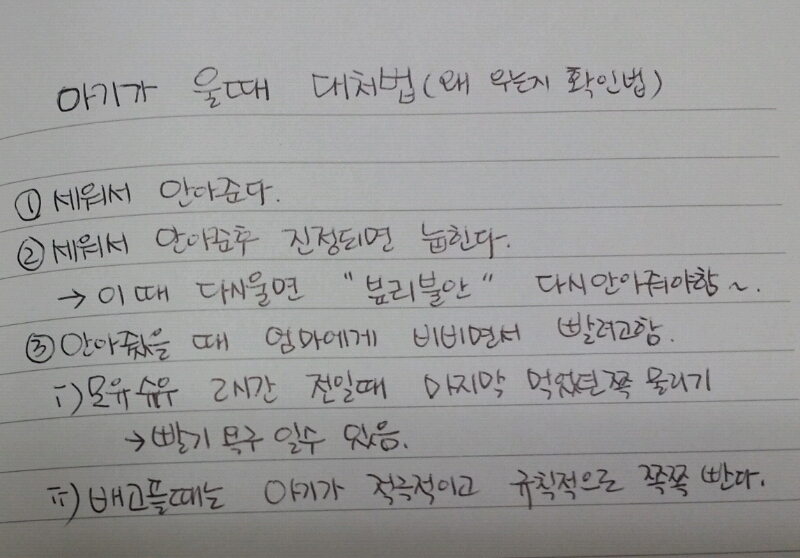 아기가 울때 대처법(왜 우는지 확인법)
① 세워서 안아준다.
② 세워서 안아준후 진정되면 눕힌다.
→ 이때 다시울면 "분리불안" 다시안아줘야함~.
③ 안아줬을 때 엄마에게 비비면서 빨려고함.
ⅰ) 모유수유 2시간 전일때 마지막 먹었던쪽 물리기
→ 빨기 욕구 일수 있음.
ⅱ) 배고플때는 아기가 적극적이고 규칙적으로 쪽쪽 빤다.